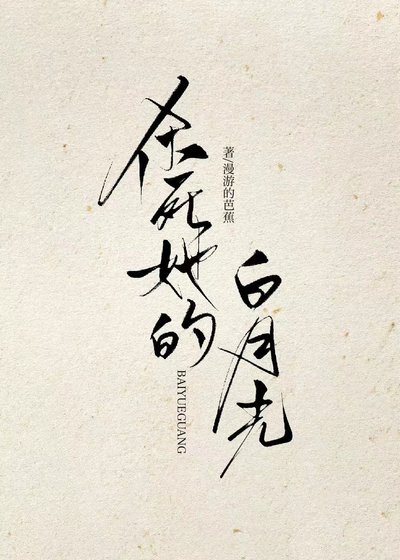 杀死她的
白月光
著/漫游的芭蕉
BAIYUEGUANG